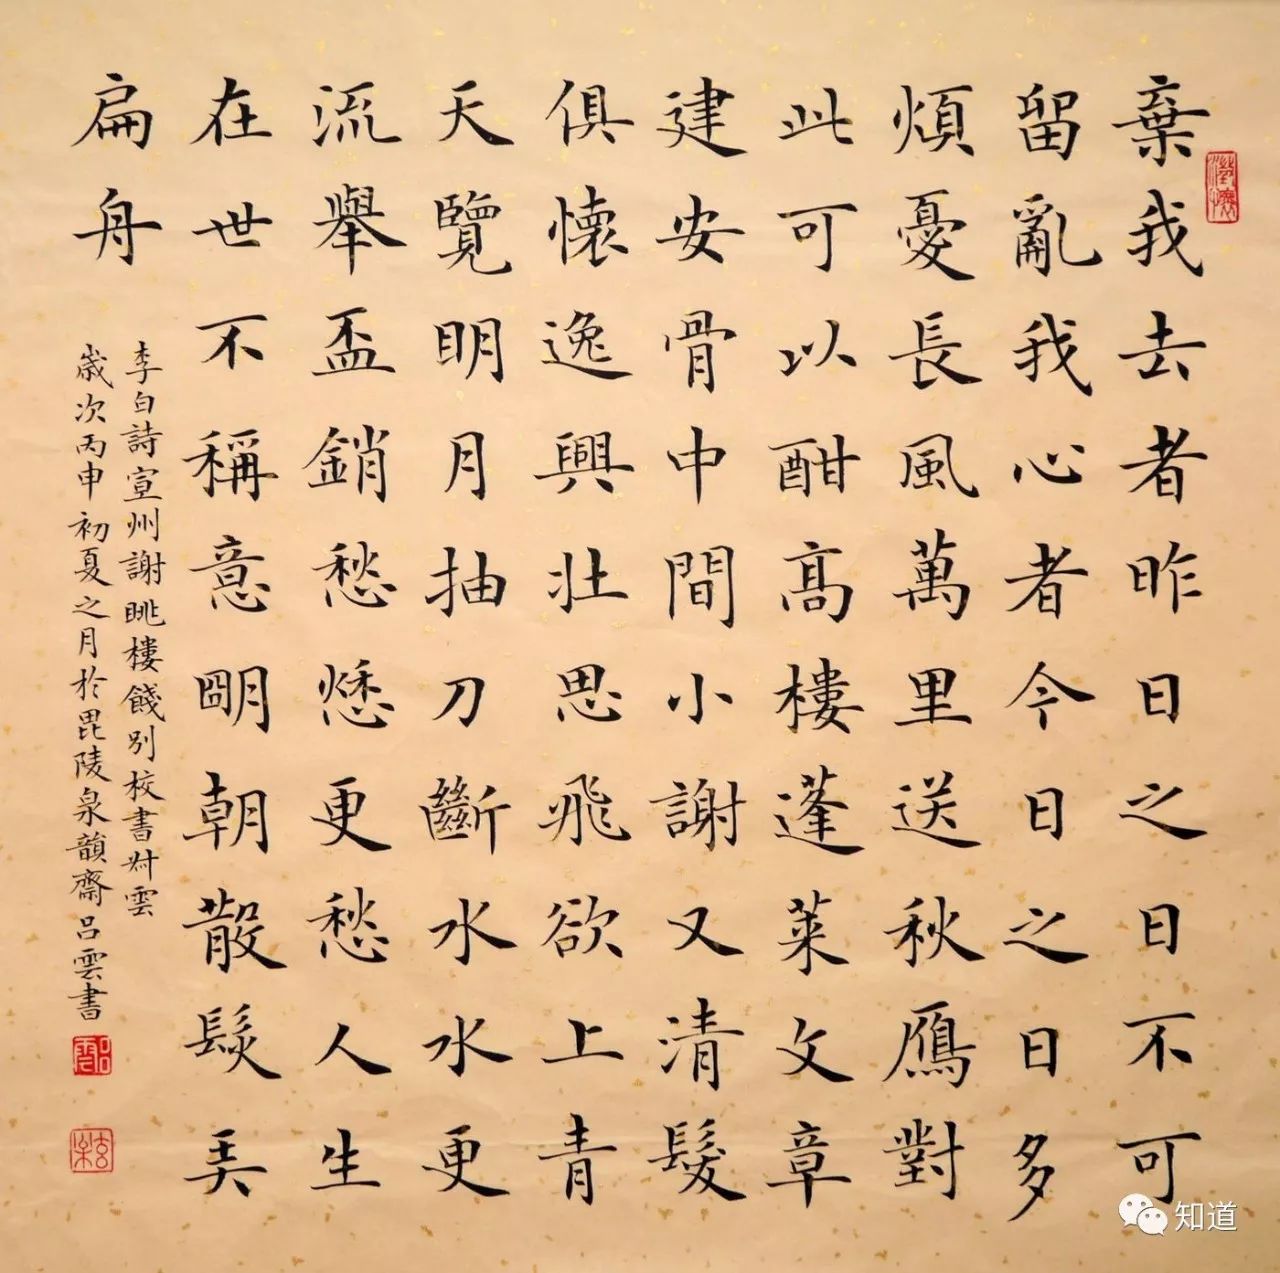 棄我去者昨日之日不可
留亂我心者今日之日多
煩憂長風萬里送秋鴈對
此可以酣髙樓蓬萊文章
建安骨中間小謝又清髮
俱懷逸興壯思飛欲上青
天覽眀月抽刀斷水水更
流舉盃銷愁愁更愁人生
在世不稱意朙朝散髮弄
扁舟
李白詩宣州謝眺樓餞別校書叔雲
歲次丙申初夏之月於毘陵泉韻齋吕雲書
吕雲
知道